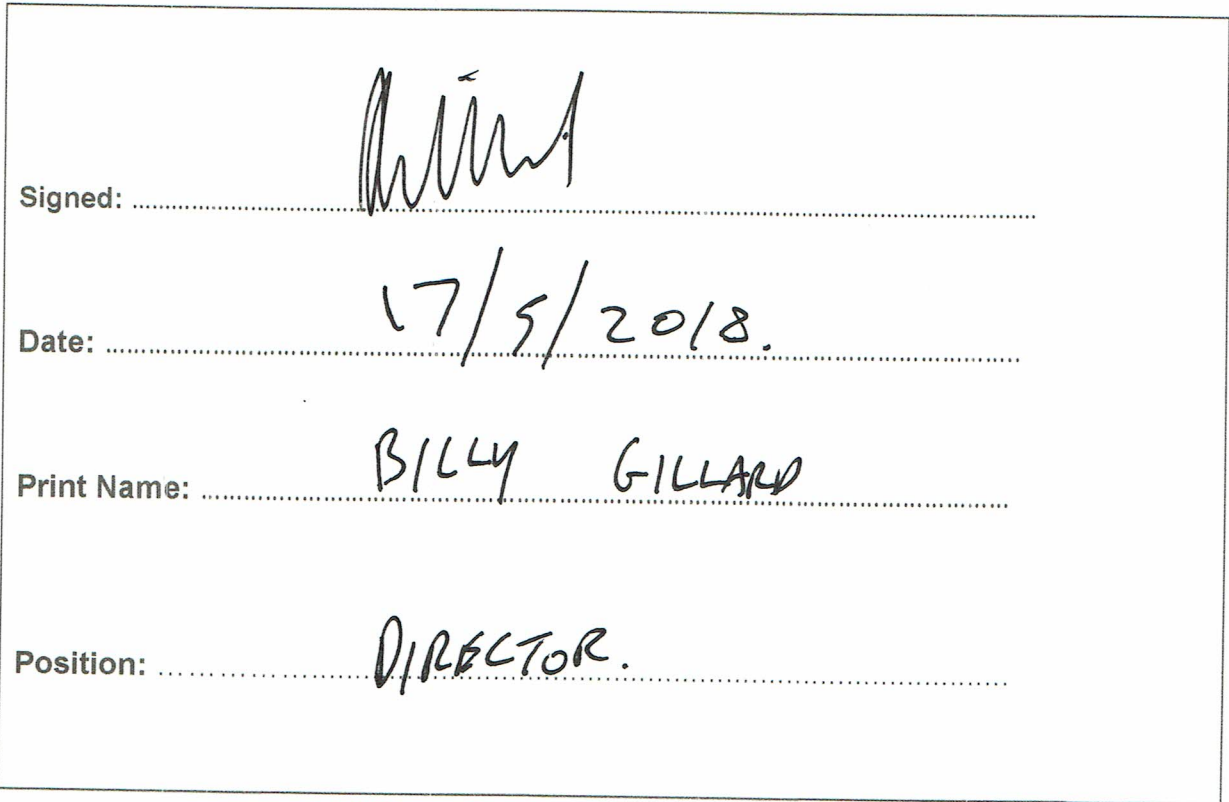 Signed:
Date: 17/5/2018.
Print Name: BILLY GILLARD
Position: DIRECTOR.